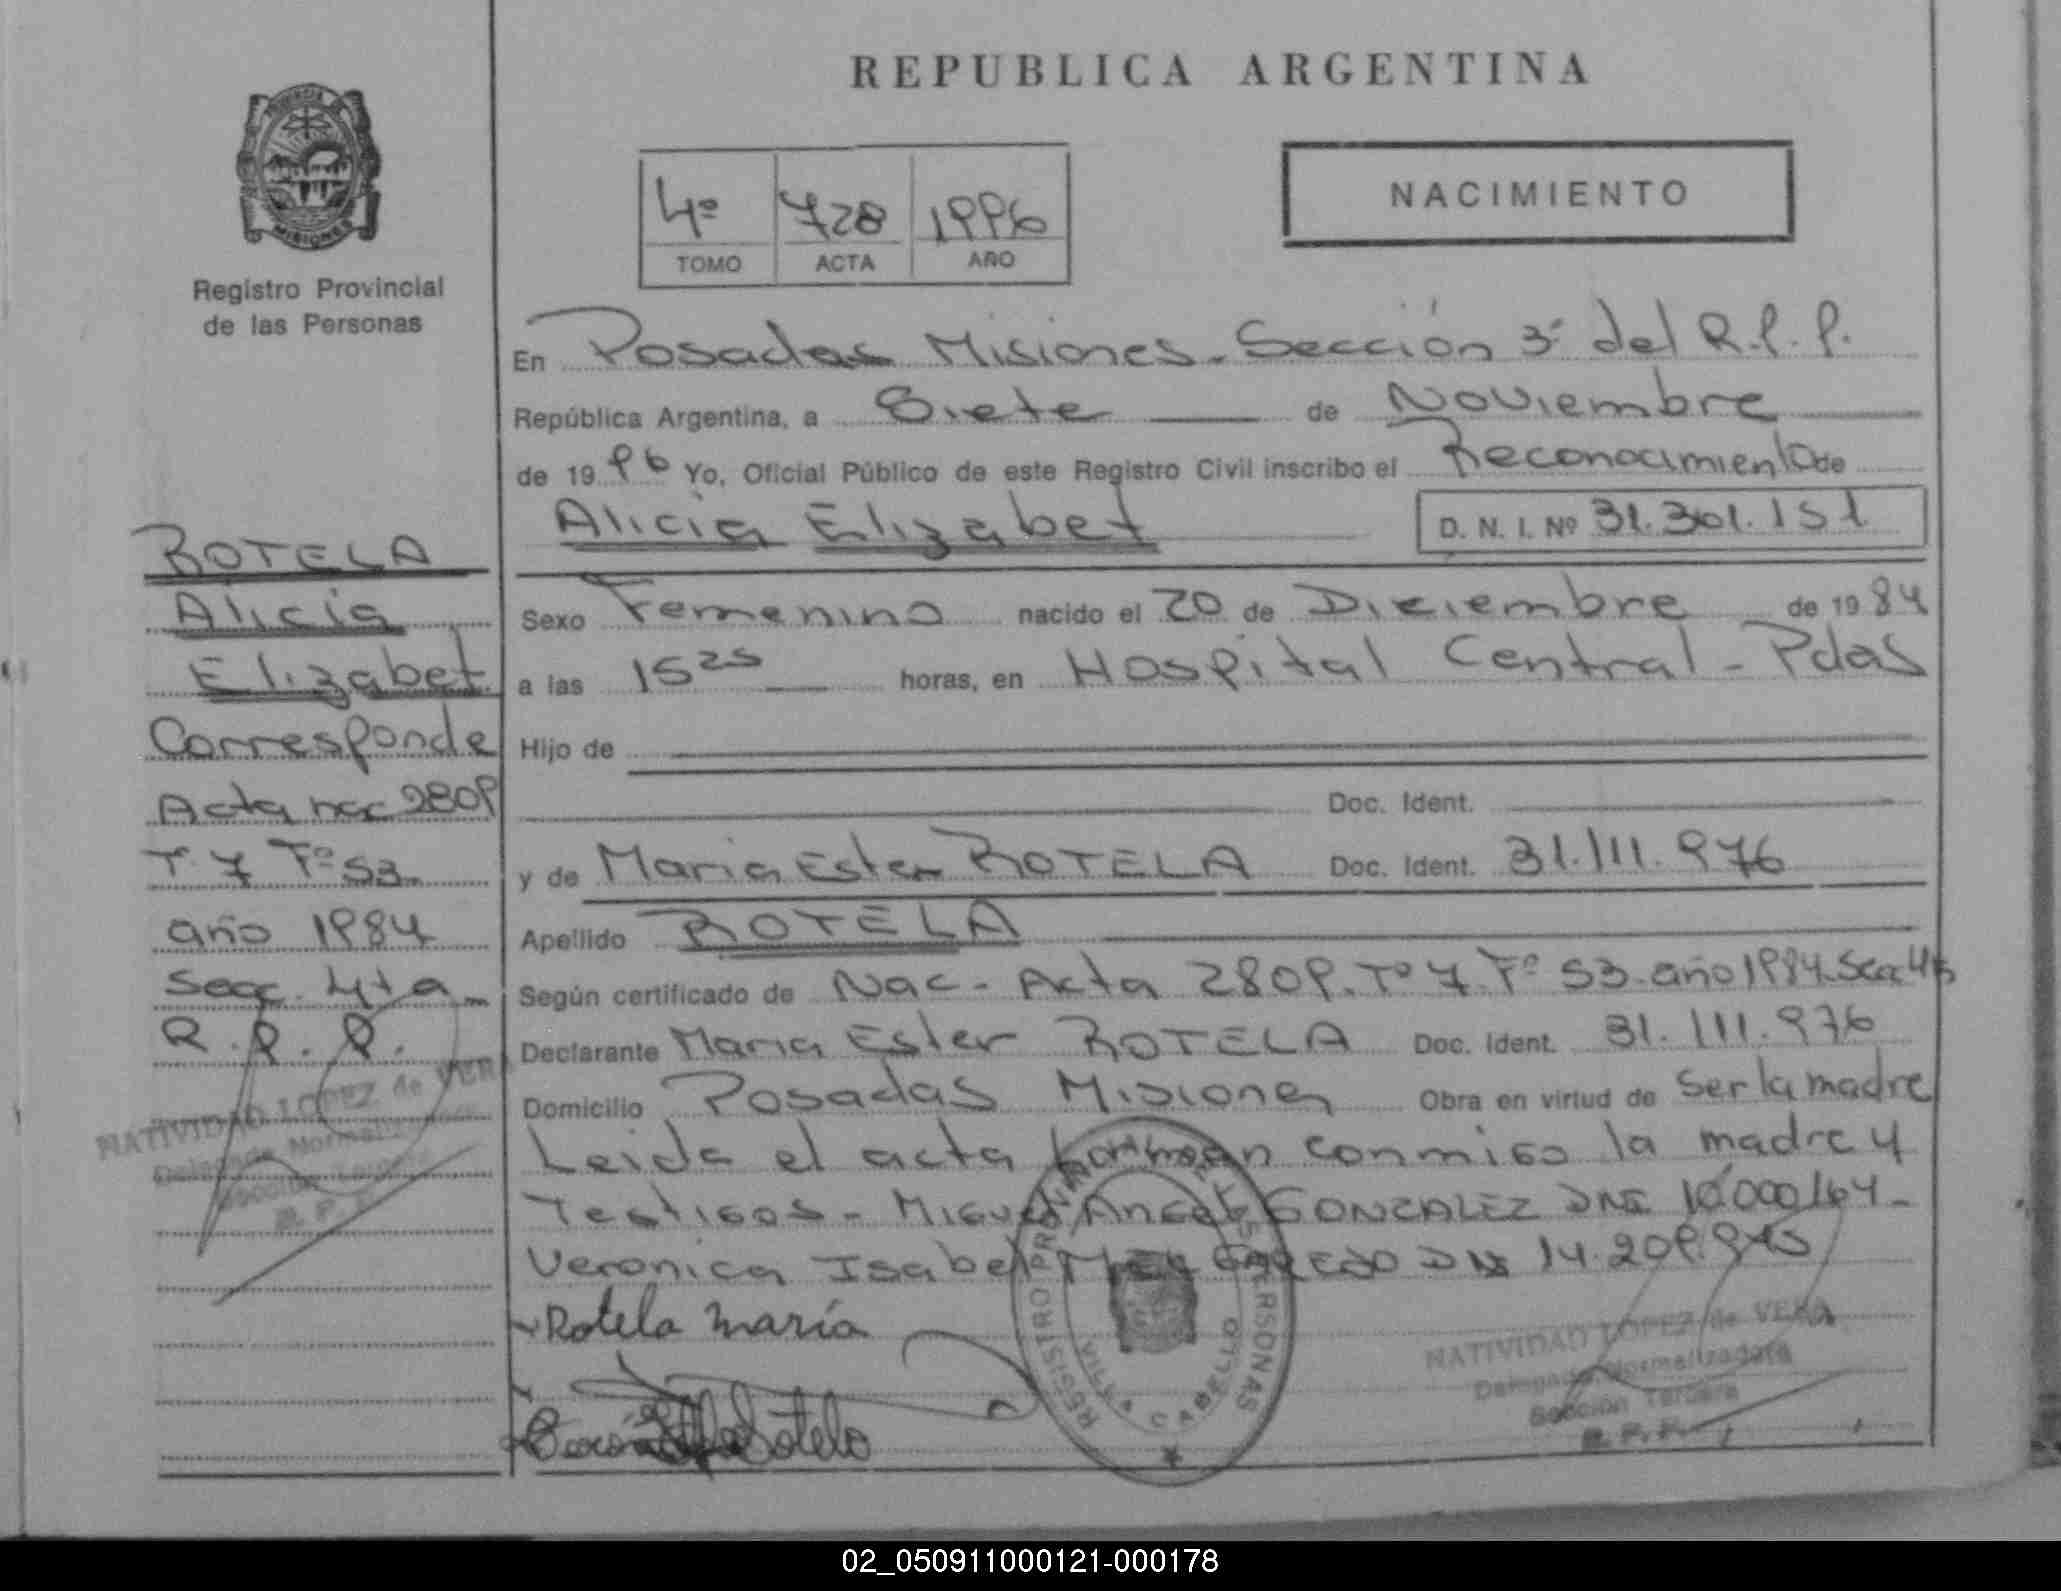 REPUBLICA ARGENTINA
PROVINCIA DE
MISIONES
Registro Provincial
de las Personas
4º 728 1996
TOMO ACTA AÑO
NACIMIENTO
En Posadas Misiones. Sección 3ª del R.P.P.
República Argentina, a Siete de Noviembre
de 1996 Yo, Oficial Público de este Registro Civil inscribo el Reconocimiento de
Alicia Elizabet D. N. I. Nº 31.301.151
Sexo Femenino nacido el 20 de Diciembre de 1984
a las 15 25 horas, en Hospital Central - Pdas
Hijo de
Doc. Ident.
y de Maria Ester ROTELA Doc. Ident. 31.111.976
Apellido ROTELA
Según certificado de Nac - Acta 2809. Tº 7. Fº 53. año 1984. Secc 4ta
Declarante Maria Ester ROTELA Doc. Ident. 31.111.976
Domicilio Posadas Misiones Obra en virtud de Ser la madre
Leida el acta firman conmigo la madre y
Testigos - Miguel Angel GONZALEZ DNI 10.000.164 -
Veronica Isabel DNI 14.209.
Rotela maría
Sotelo
ROTELA
Alicia
Elizabet
Corresponde
Acta nac 2809
T. 7 Fº 53
año 1984
Secc. 4ta
R.P.P.
NATIVIDAD LOPEZ de VERA
Delegada Normalizadora
Sección Tercera
R. P. P.
REGISTRO PROVINCIAL DE LAS PERSONAS
VILLA CABELLO
NATIVIDAD LOPEZ de VERA
Delegada Normalizadora
Sección Tercera
R. P. P.
02_050911000121-000178